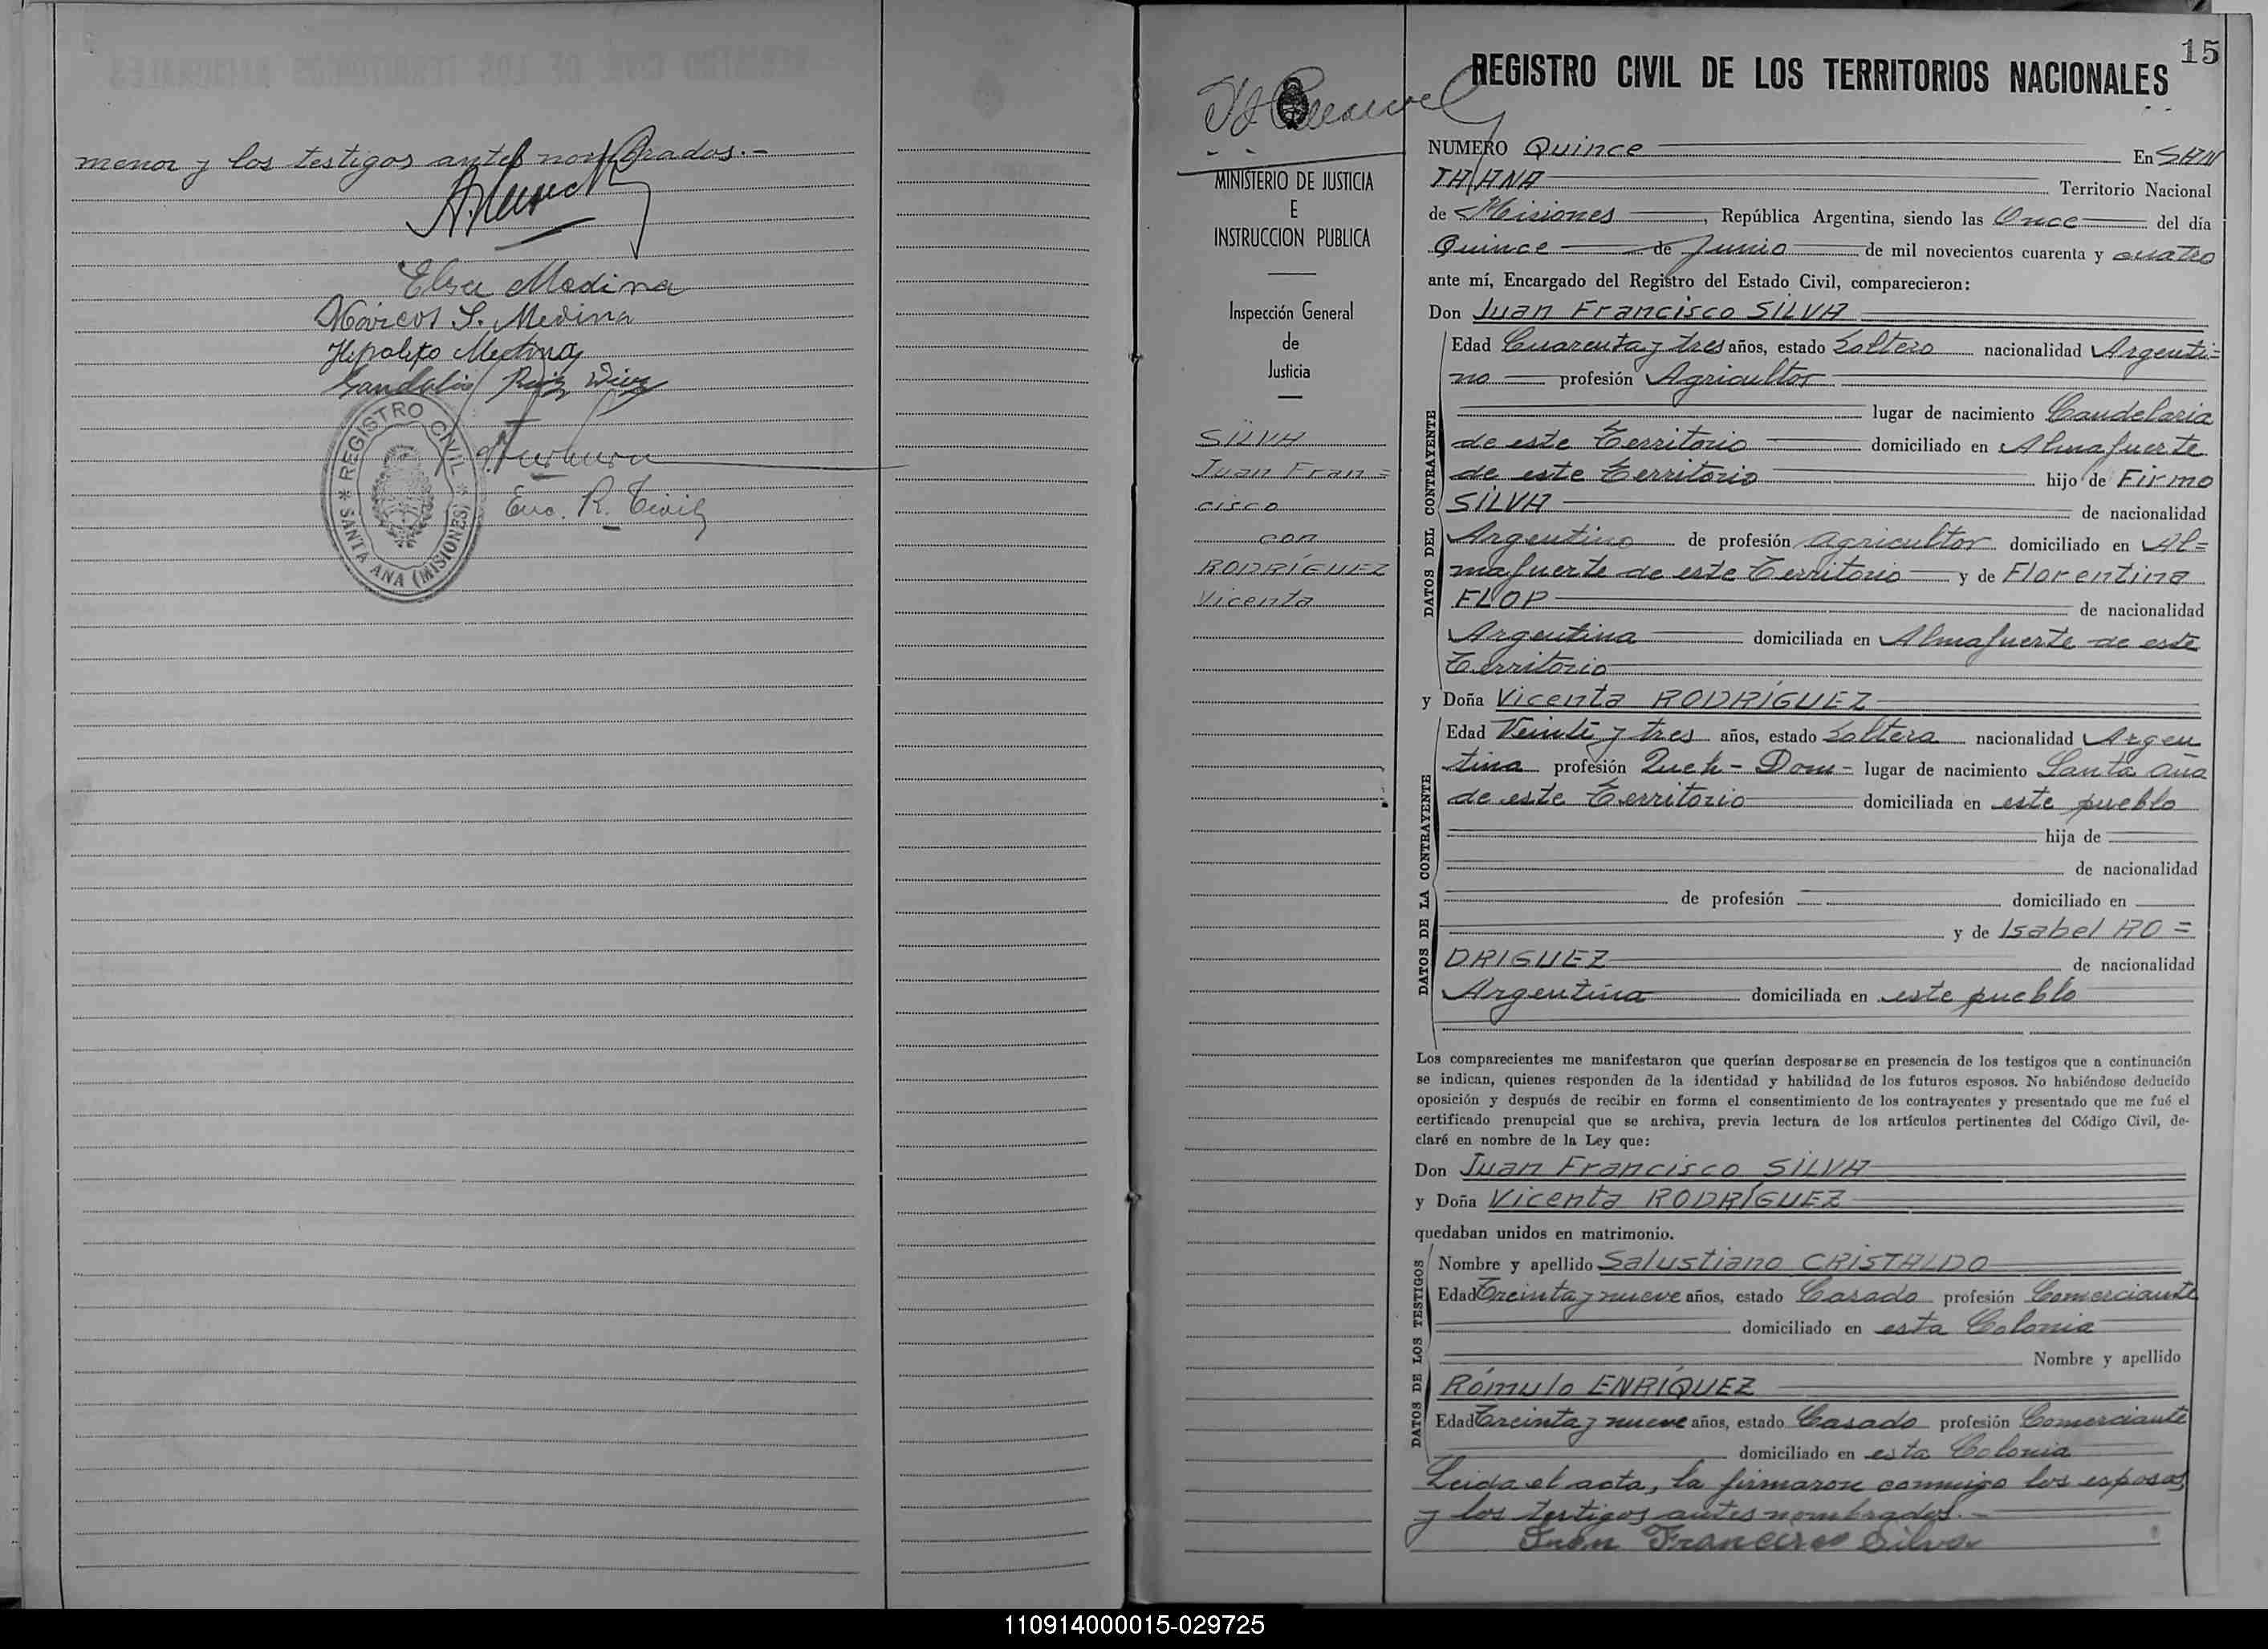 menor y los testigos antes nombrados.-
Elsa Medina
Marcos S. Medina
Hipolito Medina
Gandulio Ruiz Diaz
Enc. R. Civil
REGISTRO CIVIL
SANTA ANA (MISIONES)
15
REGISTRO CIVIL DE LOS TERRITORIOS NACIONALES
MINISTERIO DE JUSTICIA
E
INSTRUCCION PUBLICA
Inspección General
de
Justicia
SILVA
Juan Fran=
cisco
con
RODRÍGUEZ
Vicenta
NUMERO Quince En SAN
TA ANA Territorio Nacional
de Misiones, República Argentina, siendo las Once del día
Quince de Junio de mil novecientos cuarenta y cuatro
ante mí, Encargado del Registro del Estado Civil, comparecieron:
Don Juan Francisco SILVA
DATOS DEL CONTRAYENTE
Edad Cuarenta y tres años, estado Soltero nacionalidad Argenti=
no profesión Agricultor
lugar de nacimiento Candelaria
de este Territorio domiciliado en Almafuerte
de este Territorio hijo de Firmo
SILVA de nacionalidad
Argentino de profesión agricultor domiciliado en Al=
mafuerte de este Territorio y de Florentina
FLOP de nacionalidad
Argentina domiciliada en Almafuerte de este
Territorio
y Doña Vicenta RODRÍGUEZ
DATOS DE LA CONTRAYENTE
Edad Veinte y tres años, estado Soltera nacionalidad Argen
tina profesión Queh-Dom- lugar de nacimiento Santa Ana
de este Territorio domiciliada en este pueblo
hija de
de nacionalidad
de profesión domiciliado en
y de Isabel RO=
DRIGUEZ de nacionalidad
Argentina domiciliada en este pueblo
Los comparecientes me manifestaron que querían desposarse en presencia de los testigos que a continuación
se indican, quienes responden de la identidad y habilidad de los futuros esposos. No habiéndose deducido
oposición y después de recibir en forma el consentimiento de los contrayentes y presentado que me fué el
certificado prenupcial que se archiva, previa lectura de los artículos pertinentes del Código Civil, de-
claré en nombre de la Ley que:
Don Juan Francisco SILVA
y Doña Vicenta RODRÍGUEZ
quedaban unidos en matrimonio.
DATOS DE LOS TESTIGOS
Nombre y apellido Salustiano CRISTALDO
Edad Treinta y nueve años, estado Casado profesión Comerciante
domiciliado en esta Colonia
Nombre y apellido
Rómulo ENRÍQUEZ
Edad Treinta y nueve años, estado Casado profesión Comerciante
domiciliado en esta Colonia
Leida el acta, la firmaron conmigo los esposos
y los testigos antes nombrados.-
Juan Francisco Silva
110914000015-029725